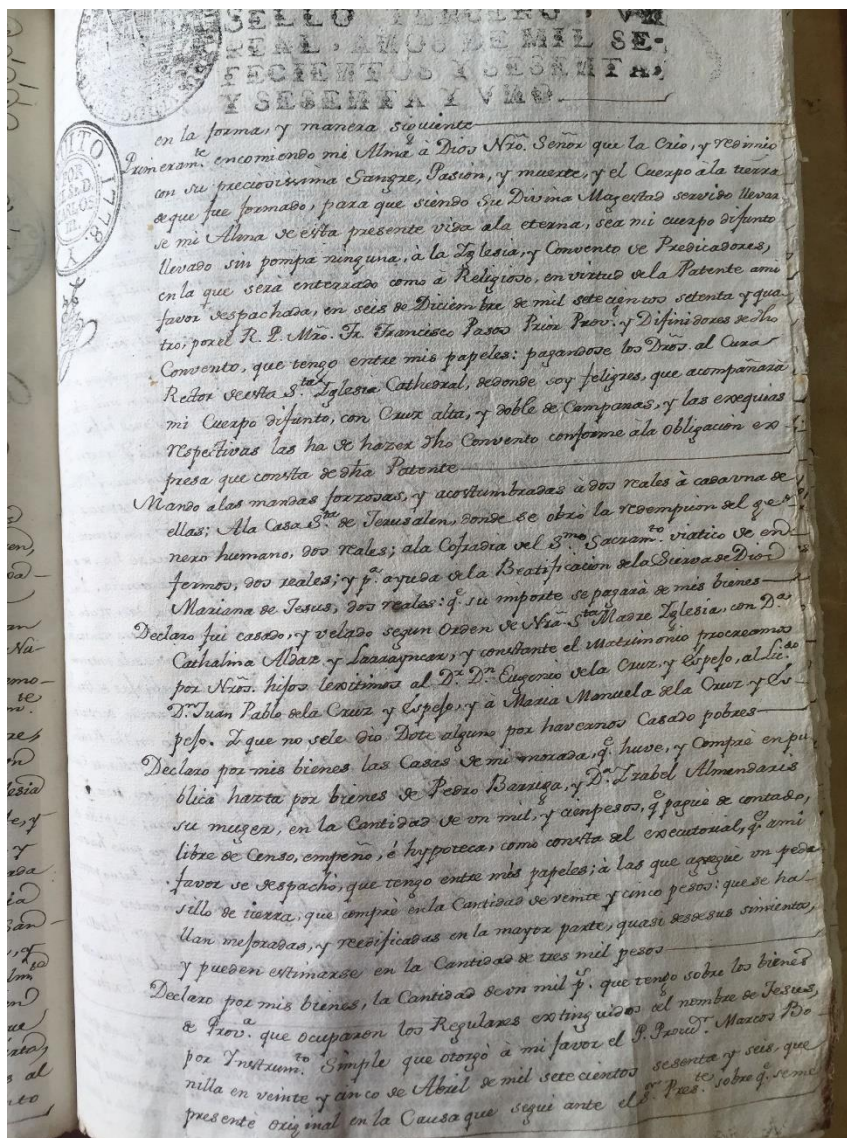 SELLO TERCERO, VN
REAL, AÑOS DE MIL SE-
TECIENTOS Y SESENTA,
Y SESENTA Y VNO.
QUITO. 1778. Y
en la forma, y manera siguiente
Primeram.te encomiendo mi Alma à Dios Nrõ. Señor que la Crio, y redimio
con su preciosissima Sangre, Pasion, y muerte, y el Cuerpo àla tierra
de que fue formado, para que siendo Su Divina Magestad servido llevar
se mi Alma de esta presente vida ala eterna, sea mi cuerpo difunto
llevado sin pompa ninguna, à la Iglesia, y Convento de Predicadores,
en la que serà enterrado como à Religioso, en virtud dela Patente ami
favor despachada, en seis de Diciembre de mil setecientos setenta y qua-
tro, por el R. P. Mrõ. Fr. Francisco Pasos Prior Prov.l y Difinidores de dho
Convento, que tengo entre mis papeles: pagandose los Drõs. al Cura
Rector de esta S.ta Iglesia Cathedral, dedonde soy feligres, que acompañarà
mi Cuerpo difunto, con Cruz alta, y doble de Campanas, y las exequias
respectivas las ha de hazer dho Convento conforme àla obligacion ex-
presa que consta de dha Patente
Mando alas mandas forzosas, y acostumbradas à dos reales à cada vna de
ellas; Ala Casa S.ta de Jerusalen, donde se obrò la redempcion del ge-
nero humano, dos reales; ala Cofradia del S.mo Sacram.to viatico de en-
fermos, dos reales; y p.a ayuda dela Beatificacion dela Sierva de Dios
Mariana de Jesus, dos reales: q.e su importe se pagarà de mis bienes
Declaro fui casado, y velado segun Orden de Nrã. S.ta Madre Iglesia, con D.a
Cathalina Aldaz y Larrayncar, y constante el Matrimonio procreamos
por Nrõs. hijos lexitimos al D.r D.n Eugenio dela Cruz y Espejo, al Lic.do
D.n Juan Pablo dela Cruz y Espejo, y à Maria Manuela dela Cruz y Es-
pejo. Y que no sele dio Dote alguno por havernos Casado pobres
Declaro por mis bienes las Casas de mi morada, q.e huve, y Comprè en pu-
blica hazta por bienes de Pedro Barriga, y D.a Izabel Almendaris
su muger, en la Cantidad de vn mil, y cien pesos, q.e paguè de contado,
libre de Censo, empeño, è hypoteca, como consta del executorial, q.e ami
favor se despachò, que tengo entre mis papeles; à las que agreguè vn peda-
sillo de tierra, que comprè en la Cantidad de veinte y cinco pesos: que se ha-
llan mejoradas, y reedificadas en la mayor parte, quasi desde sus simientos,
y pueden estimarse en la Cantidad de tres mil pesos
Declaro por mis bienes, la Cantidad de vn mil p.s que tengo sobre los bienes
de Prov.a que ocuparon los Regulares extinguidos del nombre de Jesus,
por Ynstrum.to Simple que otorgò à mi favor el P. Procu.dr Marcos Bo-
nilla en veinte y cinco de Abril de mil setecientos sesenta y seis, que
presentè original en la Causa que segui ante el S.r Pres.te sobre q.e se me